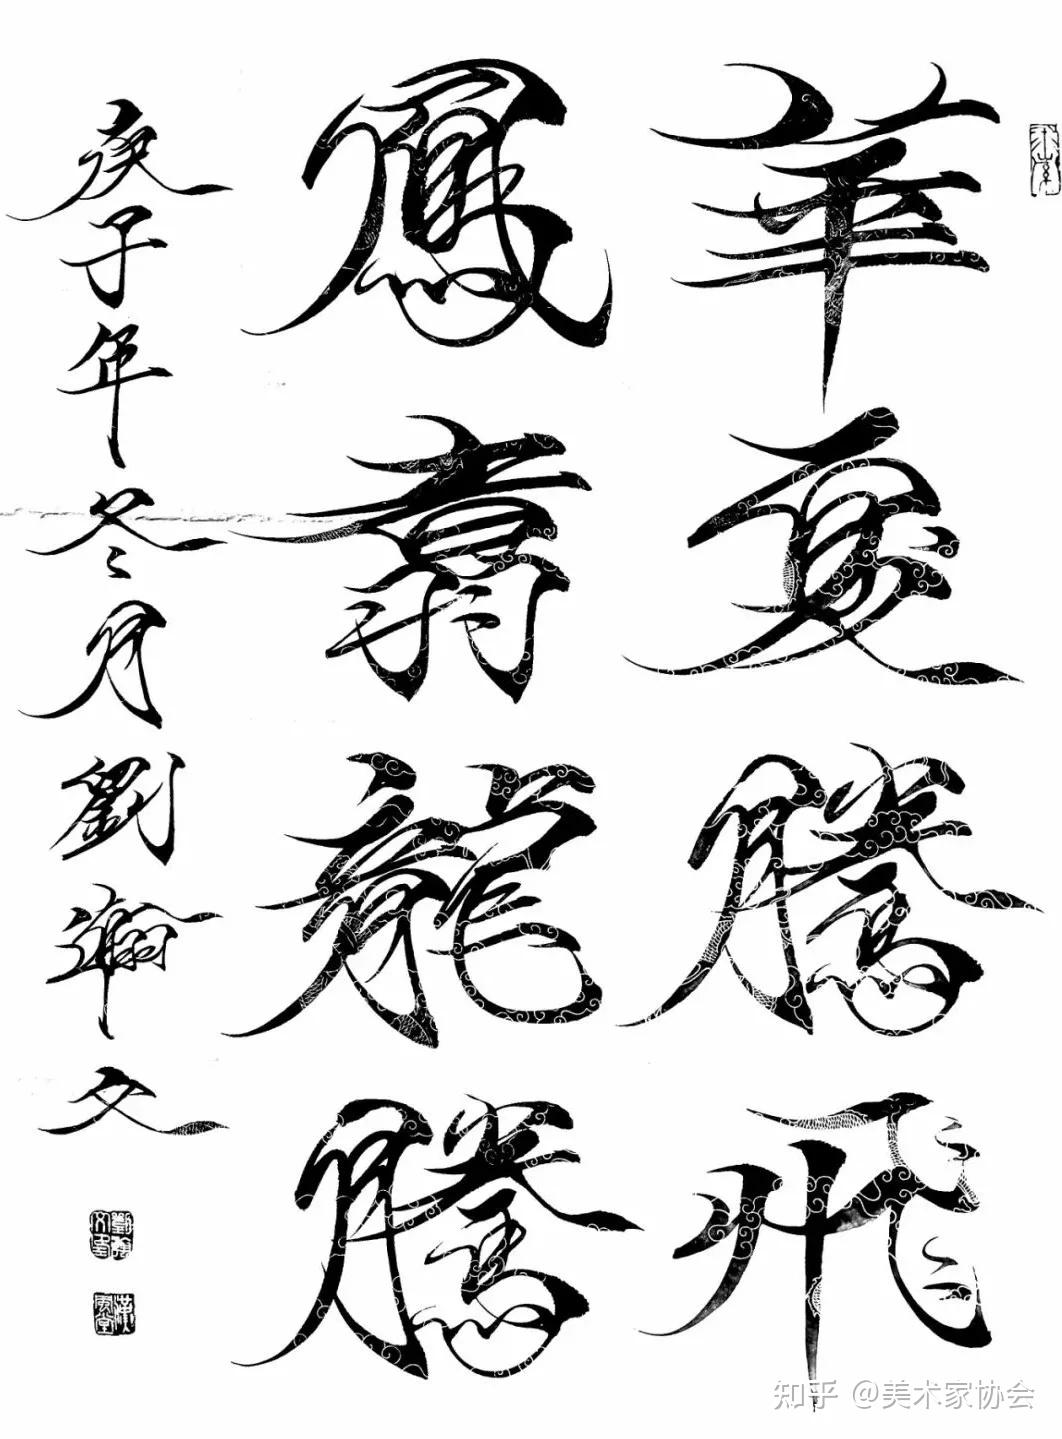 華夏騰飛
鳳翥龍騰
庚子年冬月劉瀚文
知乎 @美术家协会